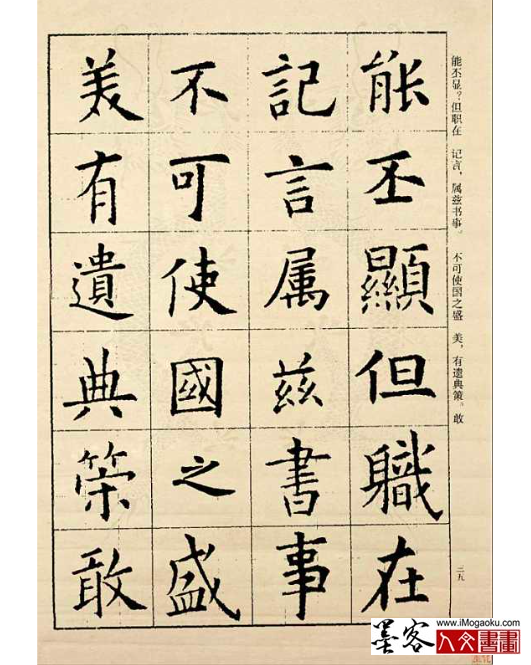 能丕显？但职在　记言，属兹书事。　不可使国之盛　美，有遗典策。敢
能丕顯但職在
記言属兹書事
不可使國之盛
美有遺典策敢
二五
www.iMogaoku.com
墨客
人文書畫